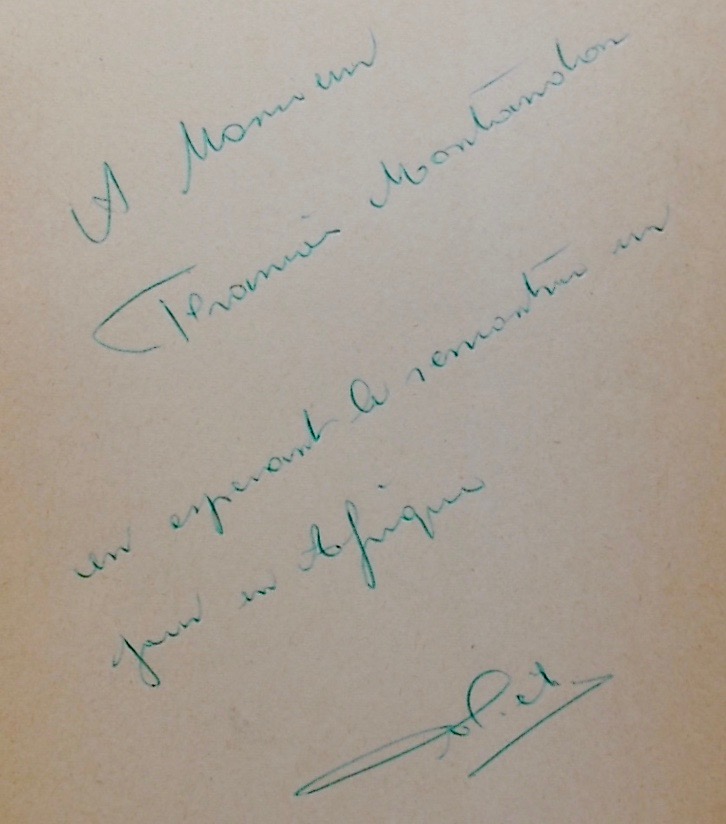 A Monsieur
Francis Montandon
en esperant le rencontrer un
jour en Afrique